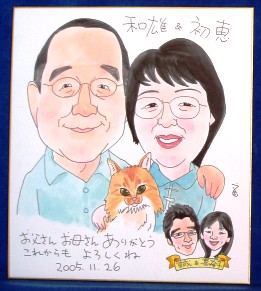 和雄 & 初恵
お父さん お母さん ありがとう
これからも よろしくね
2005.11.26